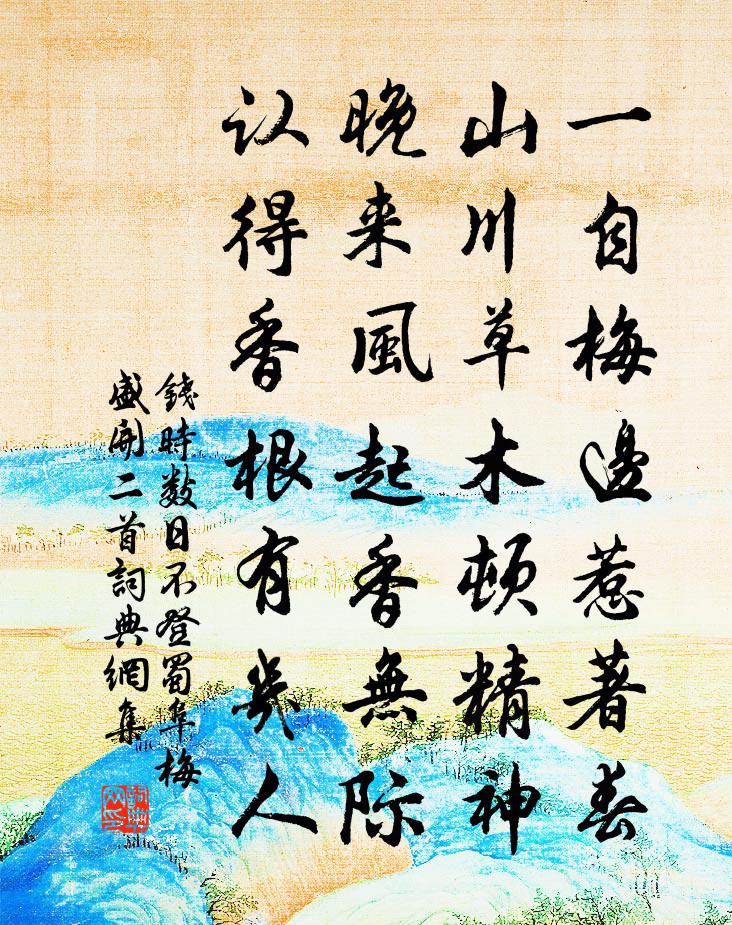 一自梅邊惹著春
山川草木頓精神
晚来風起香無际
认得香根有幾人
錢時數日不登蜀阜梅
盛開二首詞典網集